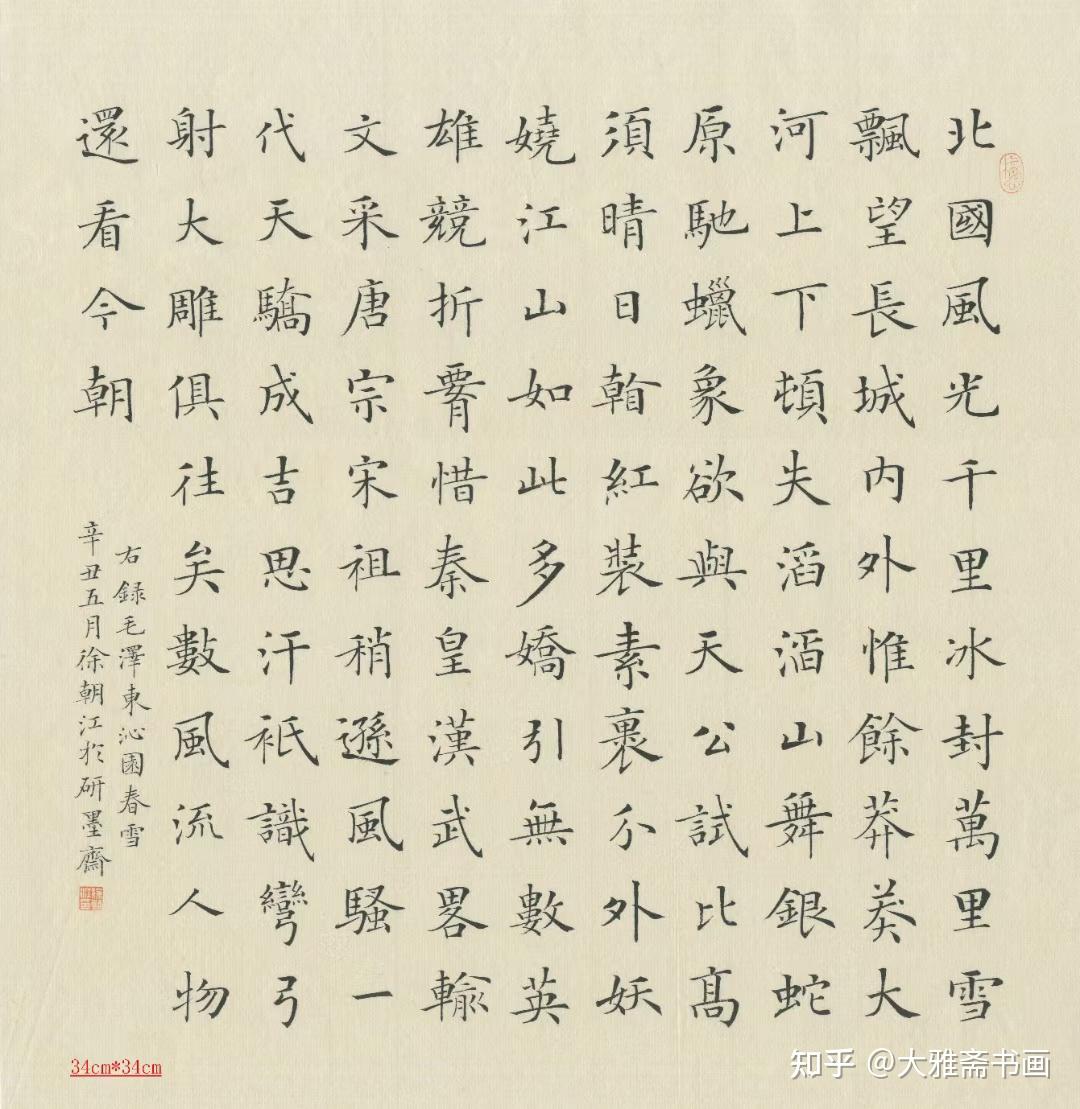 北國風光千里冰封萬里雪
飄望長城内外惟餘莽莽大
河上下頓失滔滔山舞銀蛇
原馳蠟象欲與天公試比髙
須晴日看紅裝素裹分外妖
嬈江山如此多嬌引無數英
雄競折腰惜秦皇漢武畧輸
文采唐宗宋祖稍遜風騷一
代天驕成吉思汗衹識彎弓
射大雕俱往矣數風流人物
還看今朝
右録毛澤東沁園春雪
辛丑五月徐朝江於研墨齋
34cm*34cm
知乎 @大雅斋书画